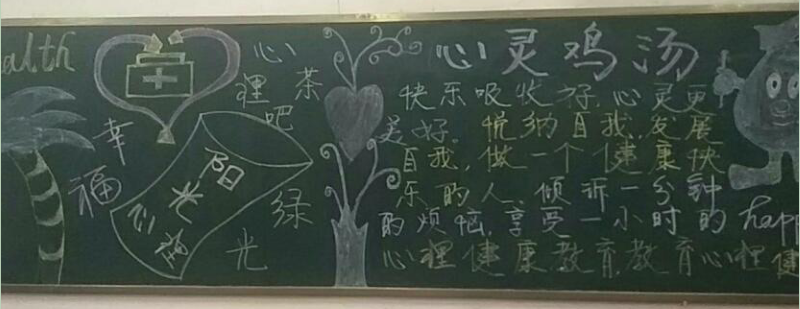 alth
幸福
心裡茶吧
阳光
绿光
心灵鸡汤
快乐吸收好,心灵更
美好。悦纳自我,发展
自我,做一个健康快
乐的人。倾诉一分钟
的烦恼,享受一小时的happ
心裡健康教育,教育心裡健